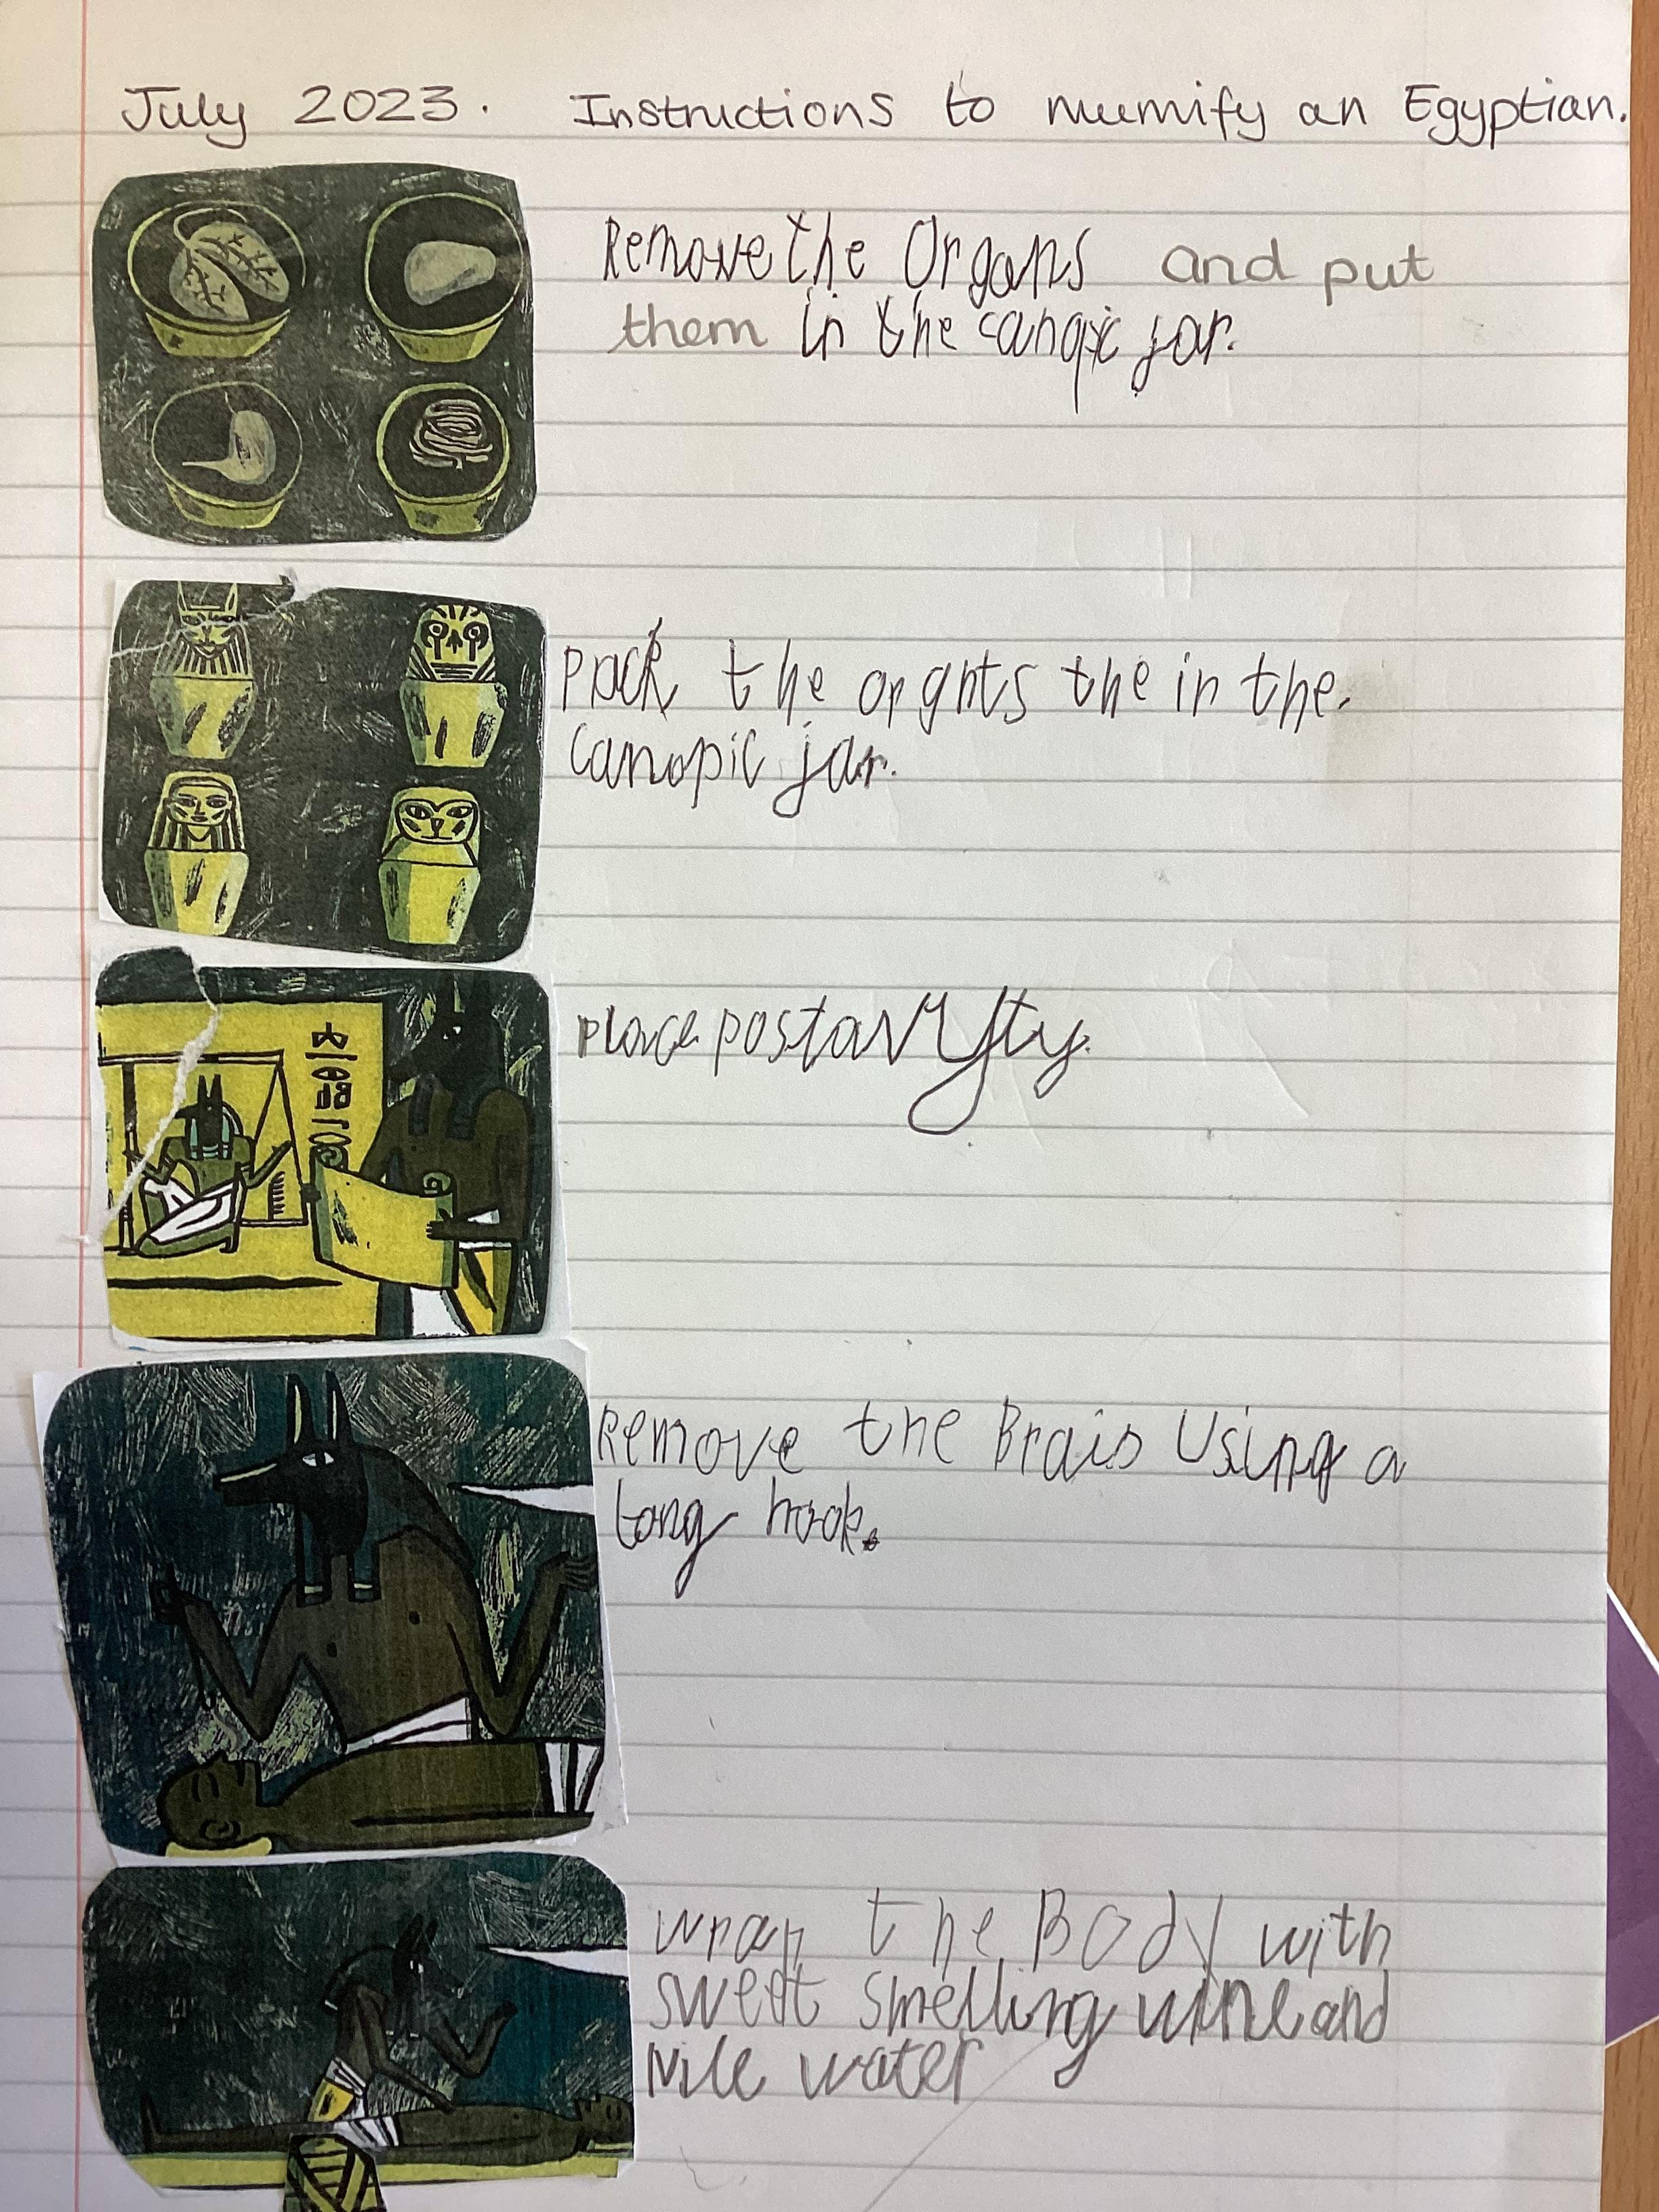 July 2023. Instructions to mumify an Egyptian.
Remove the Organs and put
them in the canqic jar.
Pack the orghts the in the.
Canopic jar.
place
Remove the Brais Using a
long hook.
wrap the Body with
sweet smelling wine and
Nile water